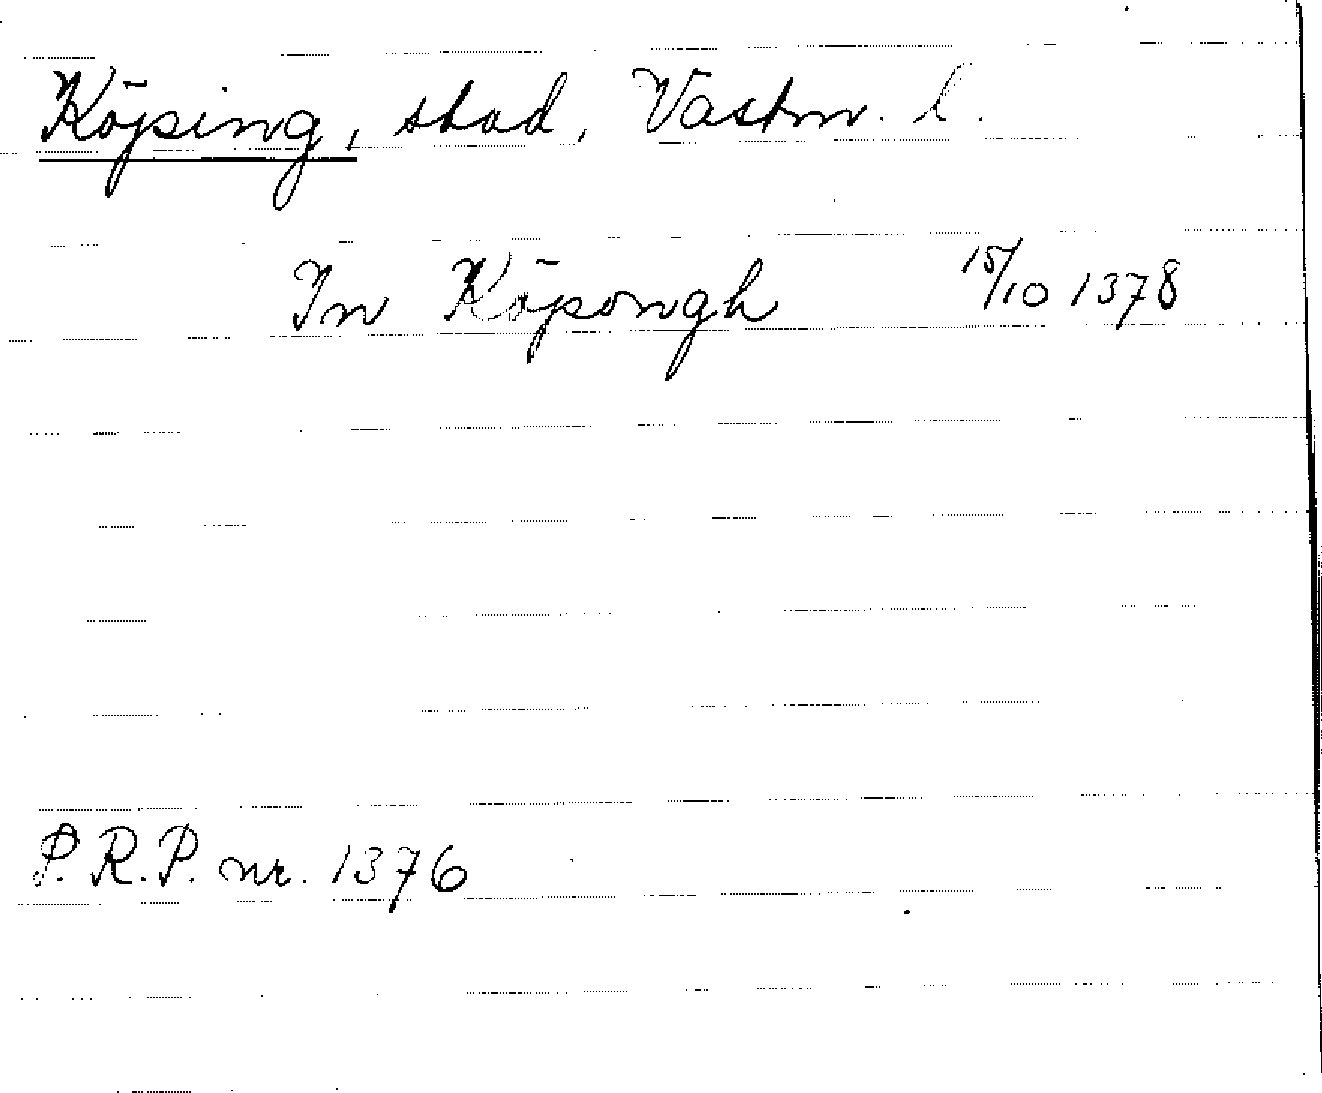 Köping, stad, Västm. l.
In Köpongh 15/10 1378
P.R.P. nr. 1376